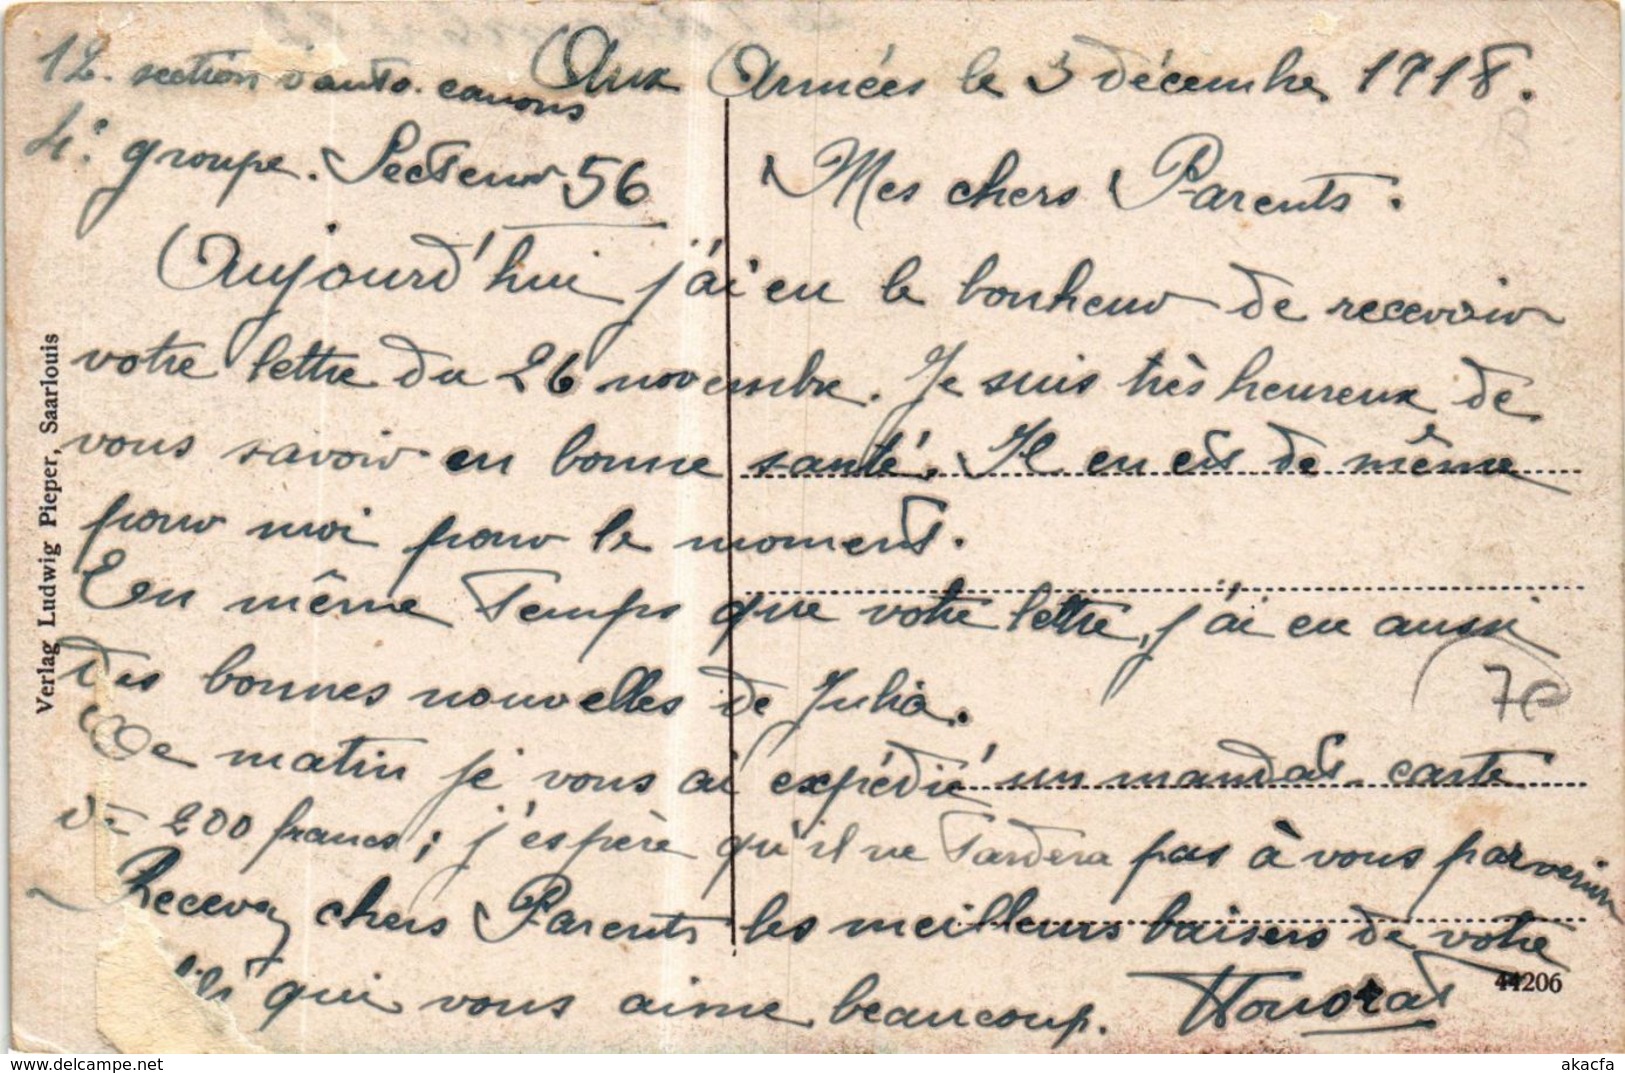 Aux Armées le 3 décembre 1918.
12. section d'auto-canons
4e groupe. Secteur 56
Mes chers Parents.
Aujourd'hui j'ai eu le bonheur de recevoir
votre lettre du 26 novembre. Je suis très heureux de
vous savoir en bonne santé. Il en est de même
pour moi pour le moment.
En même temps que votre lettre, j'ai eu aussi
des bonnes nouvelles de Julia.
Ce matin je vous ai expédié un mandat carte
de 200 francs ; j'espère qu'il ne tardera pas à vous parvenir
Recevez chers Parents les meilleurs baisers de votre
fils qui vous aime beaucoup. Honorat
70
Verlag Ludwig Pieper, Saarlouis
44206
akacfa